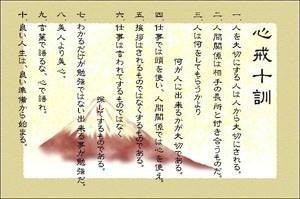 心戒十訓
一、人を大切にする人は人から大切にされる。
二、人間関係は相手の長所と付き合うものだ。
三、人は何をしてもらうかより
何が人に出来るかが大切である。
四、仕事では頭を使い、人間関係では心を使え。
五、挨拶はされるものではなくするものである。
六、仕事は言われてするものではなく
探してするものである。
七、わかるだけが勉強ではない出来る事が勉強だ。
八、美人より美心。
九、言葉で語るな、心で語れ。
十、良い人生は、良い準備から始まる。